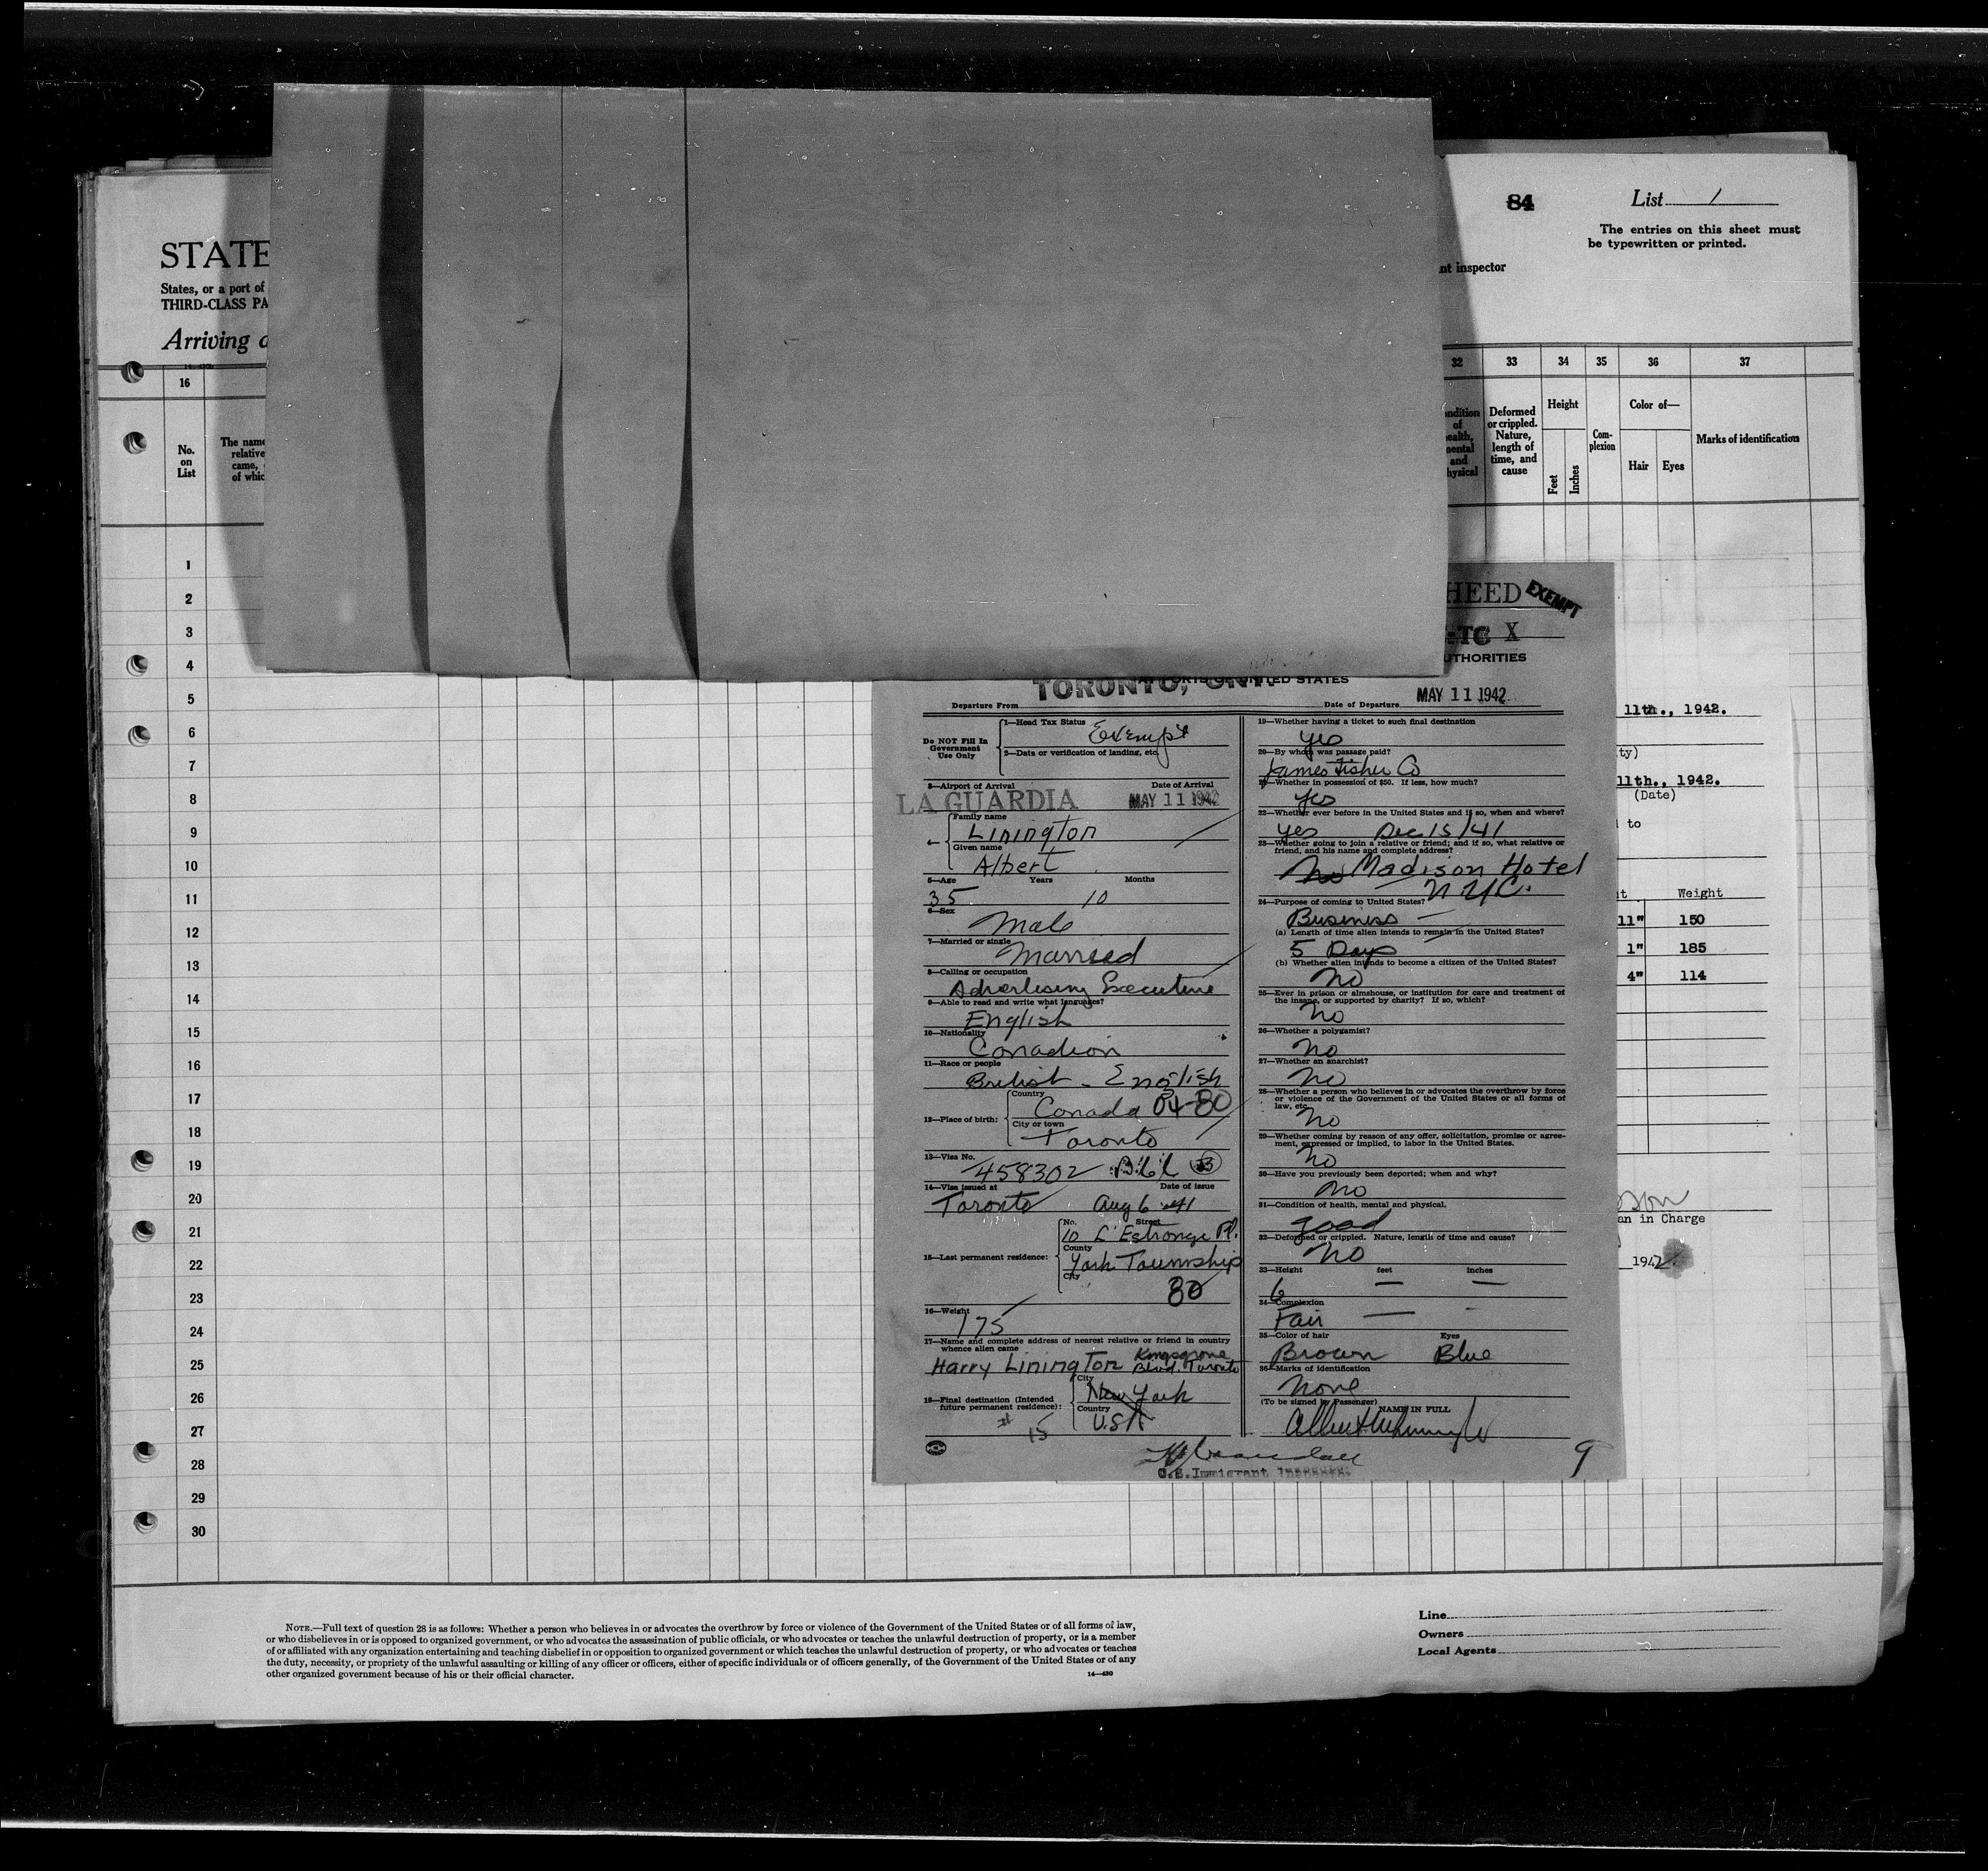 84
List 1
The entries on this sheet must
be typewritten or printed.
nt inspector
STATE
States, or a port of
THIRD-CLASS PA
Arriving a
16
No.
on
List
The name
relative
came,
of whic
32
33
34
35
36
37
ndition
of
ealth,
mental
and
hysical
Deformed
or crippled.
Nature,
length of
time, and
cause
Height
Feet
Inches
Com-
plexion
Color of—
Hair
Eyes
Marks of identification
1
2
3
4
5
6
7
8
9
10
11
12
13
14
15
16
17
18
19
20
21
22
23
24
25
26
27
28
29
30
HEED EXEMPT
-TC X
UTHORITIES
PORTS OF UNITED STATES
TORONTO, ONT.
Departure From
MAY 11 1942
Date of Departure
Do NOT Fill In
Government
Use Only
1—Head Tax Status
Exempt
2—Data or verification of landing, etc.
3—Airport of Arrival Date of Arrival
LA GUARDIA MAY 11 1942
4— Family name
Linington
Given name
Albert
5—Age Years Months
35 10
6—Sex
Male
7—Married or single
Married
8—Calling or occupation
Advertising Executive
9—Able to read and write what languages?
English
10—Nationality
Canadian
11—Race or people
British - English
12—Place of birth:
Country
Canada 04-80
City or town
Toronto
13—Visa No.
458302
14—Visa issued at Date of issue
Toronto Aug 6 41
15—Last permanent residence:
No. Street
10 L'Estrange Pl.
County
York Township
City
80
16—Weight
175
17—Name and complete address of nearest relative or friend in country
whence alien came
Harry Linington Kingsgrove
Blvd. Toronto
18—Final destination (Intended
future permanent residence):
City
New York
Country
U.S.A
15
19—Whether having a ticket to such final destination
yes
20—By whom was passage paid?
James Fisher Co
21—Whether in possession of $50. If less, how much?
yes
22—Whether ever before in the United States and if so, when and where?
yes Dec 15/41
23—Whether going to join a relative or friend; and if so, what relative or
friend, and his name and complete address?
no Madison Hotel
N.Y.C.
24—Purpose of coming to United States?
Business
(a) Length of time alien intends to remain in the United States?
5 Days
(b) Whether alien intends to become a citizen of the United States?
no
25—Ever in prison or almshouse, or institution for care and treatment of
the insane, or supported by charity? If so, which?
no
26—Whether a polygamist?
no
27—Whether an anarchist?
no
28—Whether a person who believes in or advocates the overthrow by force
or violence of the Government of the United States or all forms of
law, etc.
no
29—Whether coming by reason of any offer, solicitation, promise or agree-
ment, expressed or implied, to labor in the United States.
no
30—Have you previously been deported; when and why?
no
31—Condition of health, mental and physical.
good
32—Deformed or crippled. Nature, length of time and cause?
no
33—Height feet inches
6 — —
34—Complexion
Fair
35—Color of hair Eyes
Brown Blue
36—Marks of identification
none
(To be signed by Passenger) NAME IN FULL
U.S. Immigrant Inspector
9
11th., 1942.
ty)
11th., 1942.
(Date)
to
t Weight
11" 150
1" 185
4" 114
son
an in Charge
1942
NOTE.—Full text of question 28 is as follows: Whether a person who believes in or advocates the overthrow by force or violence of the Government of the United States or of all forms of law,
or who disbelieves in or is opposed to organized government, or who advocates the assassination of public officials, or who advocates or teaches the unlawful destruction of property, or is a member
of or affiliated with any organization entertaining and teaching disbelief in or opposition to organized government or which teaches the unlawful destruction of property, or who advocates or teaches
the duty, necessity, or propriety of the unlawful assaulting or killing of any officer or officers, either of specific individuals or of officers generally, of the Government of the United States or of any
other organized government because of his or their official character.
14—430
Line
Owners
Local Agents